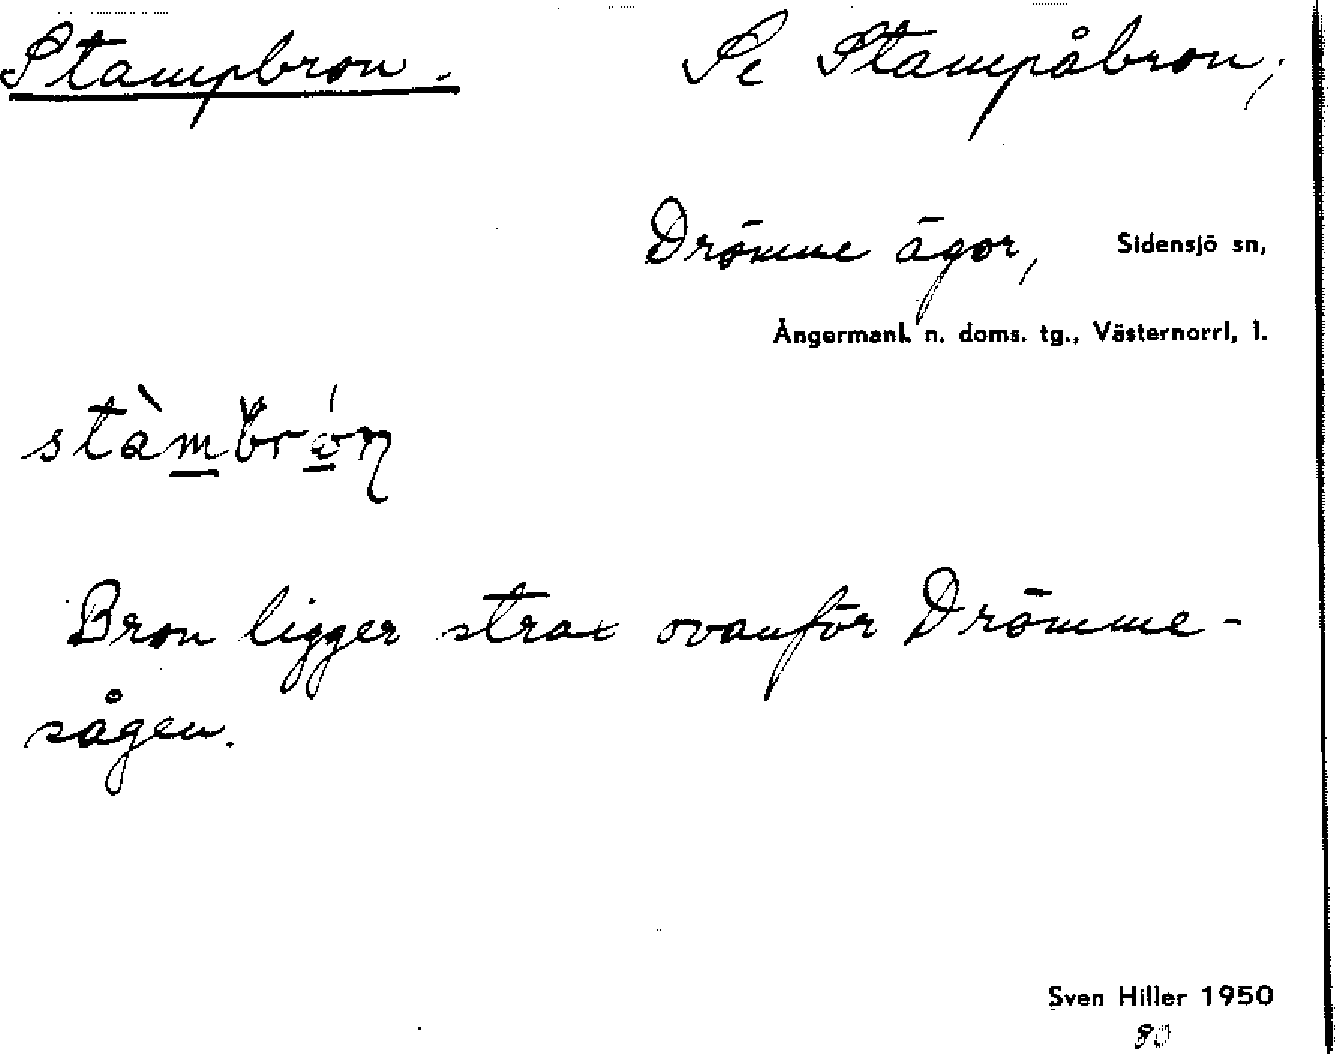 Stampbron. Se Stampåbron,
Drömme ägor, Sidensjö sn,
Ångermanl. n. doms. tg., Västernorrl. l.
stàm̲bró̲n
Bron ligger strax ovanför Drömme-
sågen.
Sven Hiller 1950
80